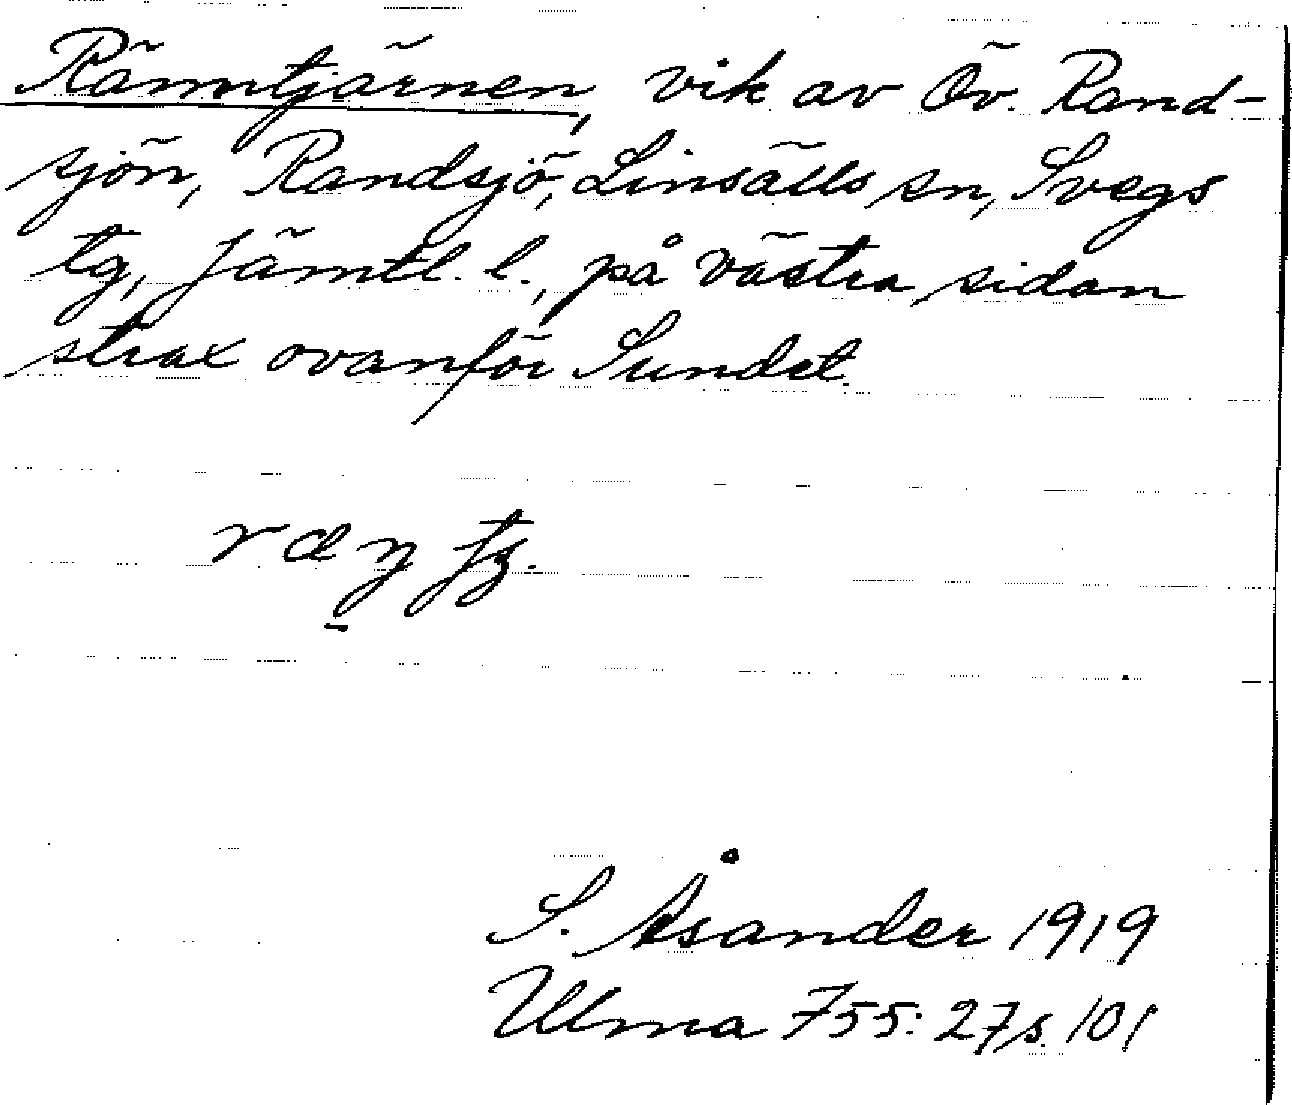 Rämntjärnen, vik av Öv. Rand-
sjön, Randsjö, Linsälls sn, Svegs
tg, Jämtl. l., på västra sidan
strax ovanför Sundet.
S. Åsander 1919
Ulma 755: 27 s. 101